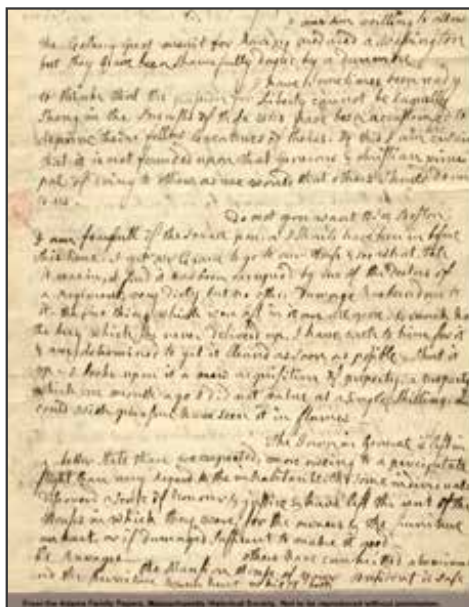 I am willing to allow
the Colony great merit for having produced a Washington
but they have been Shamefully duped by a Dunmore
I have sometimes been ready
to think that the passion for Liberty cannot be Eaquelly
Strong in the Breasts of those who have been accustomed to
deprive their fellow Creatures of theirs. Of this I am certain
that it is not founded upon that generous & christian princi
pal of doing to others as we would that others should do un
to us.
Do not you want to see Boston
I am fearfull of the small pox, or I should have been in before
this time. I got mr Crane to go to our House & see what State
it was in, I find it has been occupied by one of the Doctors of
a Regiment, very dirty but no other Damage has been done to
it. the few things which were left in it are all gone.
the key which he never deliverd up, I have wrote to him for it
& am determined to get it cleand as soon as possible & shut it
up - I look upon it a new acquisition of property, a property
which one month ago I did not value at a single Shilling, and
could with pleasure have seen it in flames
The Town in General is left in
a better state than we expected, more oweing to a percipitate
flight than any regard to the inhabitants, tho some individuals
discoverd a sense of honour & justice & have left the rent of the
Houses in which they were, for the owners & the furniture
unhurt, or if damaged sufficent to make it good
others have committed abominable
Ravages the Mansion House of your president is safe
and the furniture unhurt whilst both
From the Adams Family Papers, Massachusetts Historical Society. Not to be reproduced without permission.